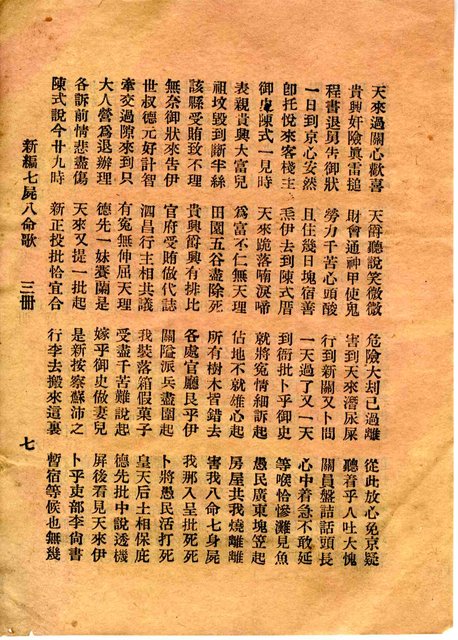 天來過關心歡喜 天爵聽說笑微微 危險大刦已過離 從此放心免京疑
貴興奸險眞雷搥 財會通神甲使鬼 害到天來潛尿屎 聽着乎八吐大愧
程書退舅告御狀 勞力千苦心頭酸 行到新關又卜問 關員盤詰話頭長
一日到京心安然 且住幾日塊宿善 一天過了又一天 心中着急不敢延
卽托悅來客棧主 伊去到陳式厝 到衙批卜乎御史 等喉恰慘灘見魚
御史陳式一見時 天來跪落喃淚啼 就將冤情細訴起 愚民廣東塊笠起
表親貴興大富兒 爲富不仁無天理 佔地不就雄心起 房屋共我燒離離
祖坟毀到斷半絲 田園五谷盡除死 所有樹木皆錯去 害我八命七身屍
該縣受賄致不理 貴興爵興有排比 各處官廳民乎伊 我那入呈批死死
無奈御狀來告伊 官府受賄做代誌 關隘派兵盡圍起 卜將愚民活打死
世叔德元好計智 泗昌行主相共議 我裝落箱假菓子 皇天后土相保庇
牽交過隙來到只 有冤無伸屈天理 受盡千苦難說起 德先批中說透機
大人營爲退辦理 德先一妹賽蘭是 嫁乎御史做妻兒 屏後看見天來伊
各訴前情悲盡傷 天來又提一批起 是新按察蘇沛之 卜乎吏部李尙書
陳式說今廿九時 新正投批恰宜合 行李去搬來這裏 暫宿等候也無幾
新編七屍八命歌 三冊 七